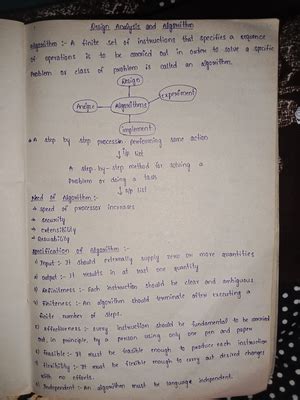 Design Analysis and Algorithm
Algorithm :- A finite set of instructions that specifies a sequence
of operations is to be carried out in order to solve a specific
problem or class of problem is called an algorithm.
Design
Analyze
Algorithms
experiment
implement
A step by step processin performing some action
↓ i/p list
A step-by-step method for solving a
problem or doing a task
↓ o/p list
Need of Algorithm :-
speed of processor increases
security
extensibility
Reusability
Specification of algorithm :-
1) Input :- It should externally supply zero or more quantities
2) output :- It results in at least one quantity
3) Definiteness :- Each instruction should be clear and ambiguous
4) Finiteness :- An algorithm should terminate after executing a
finite number of steps.
5) effectiveness :- every instruction should be fundamental to be carried
out, in principle, by a person using only one pen and paper
6) feasible :- It must be feasible enough to produce each instruction
7) flexibility :- It must be flexible enough to carry out desired changes
with no efforts.
8) Independent :- An algorithm must be language independent.